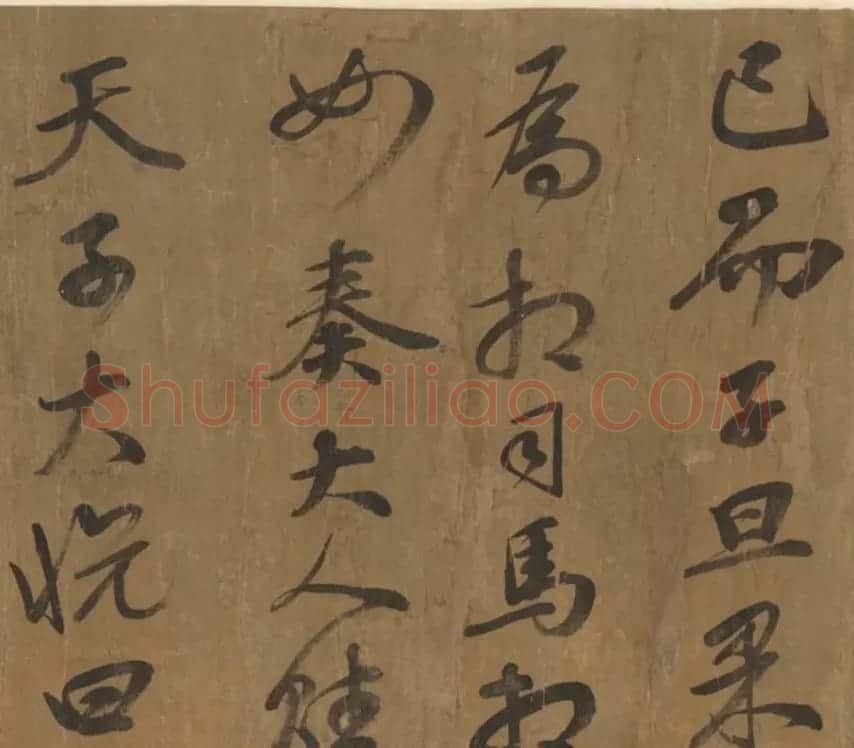 已而子旦果
為相司馬相
如奏大人賦
天子大悅曰
Shufaziliao.COM